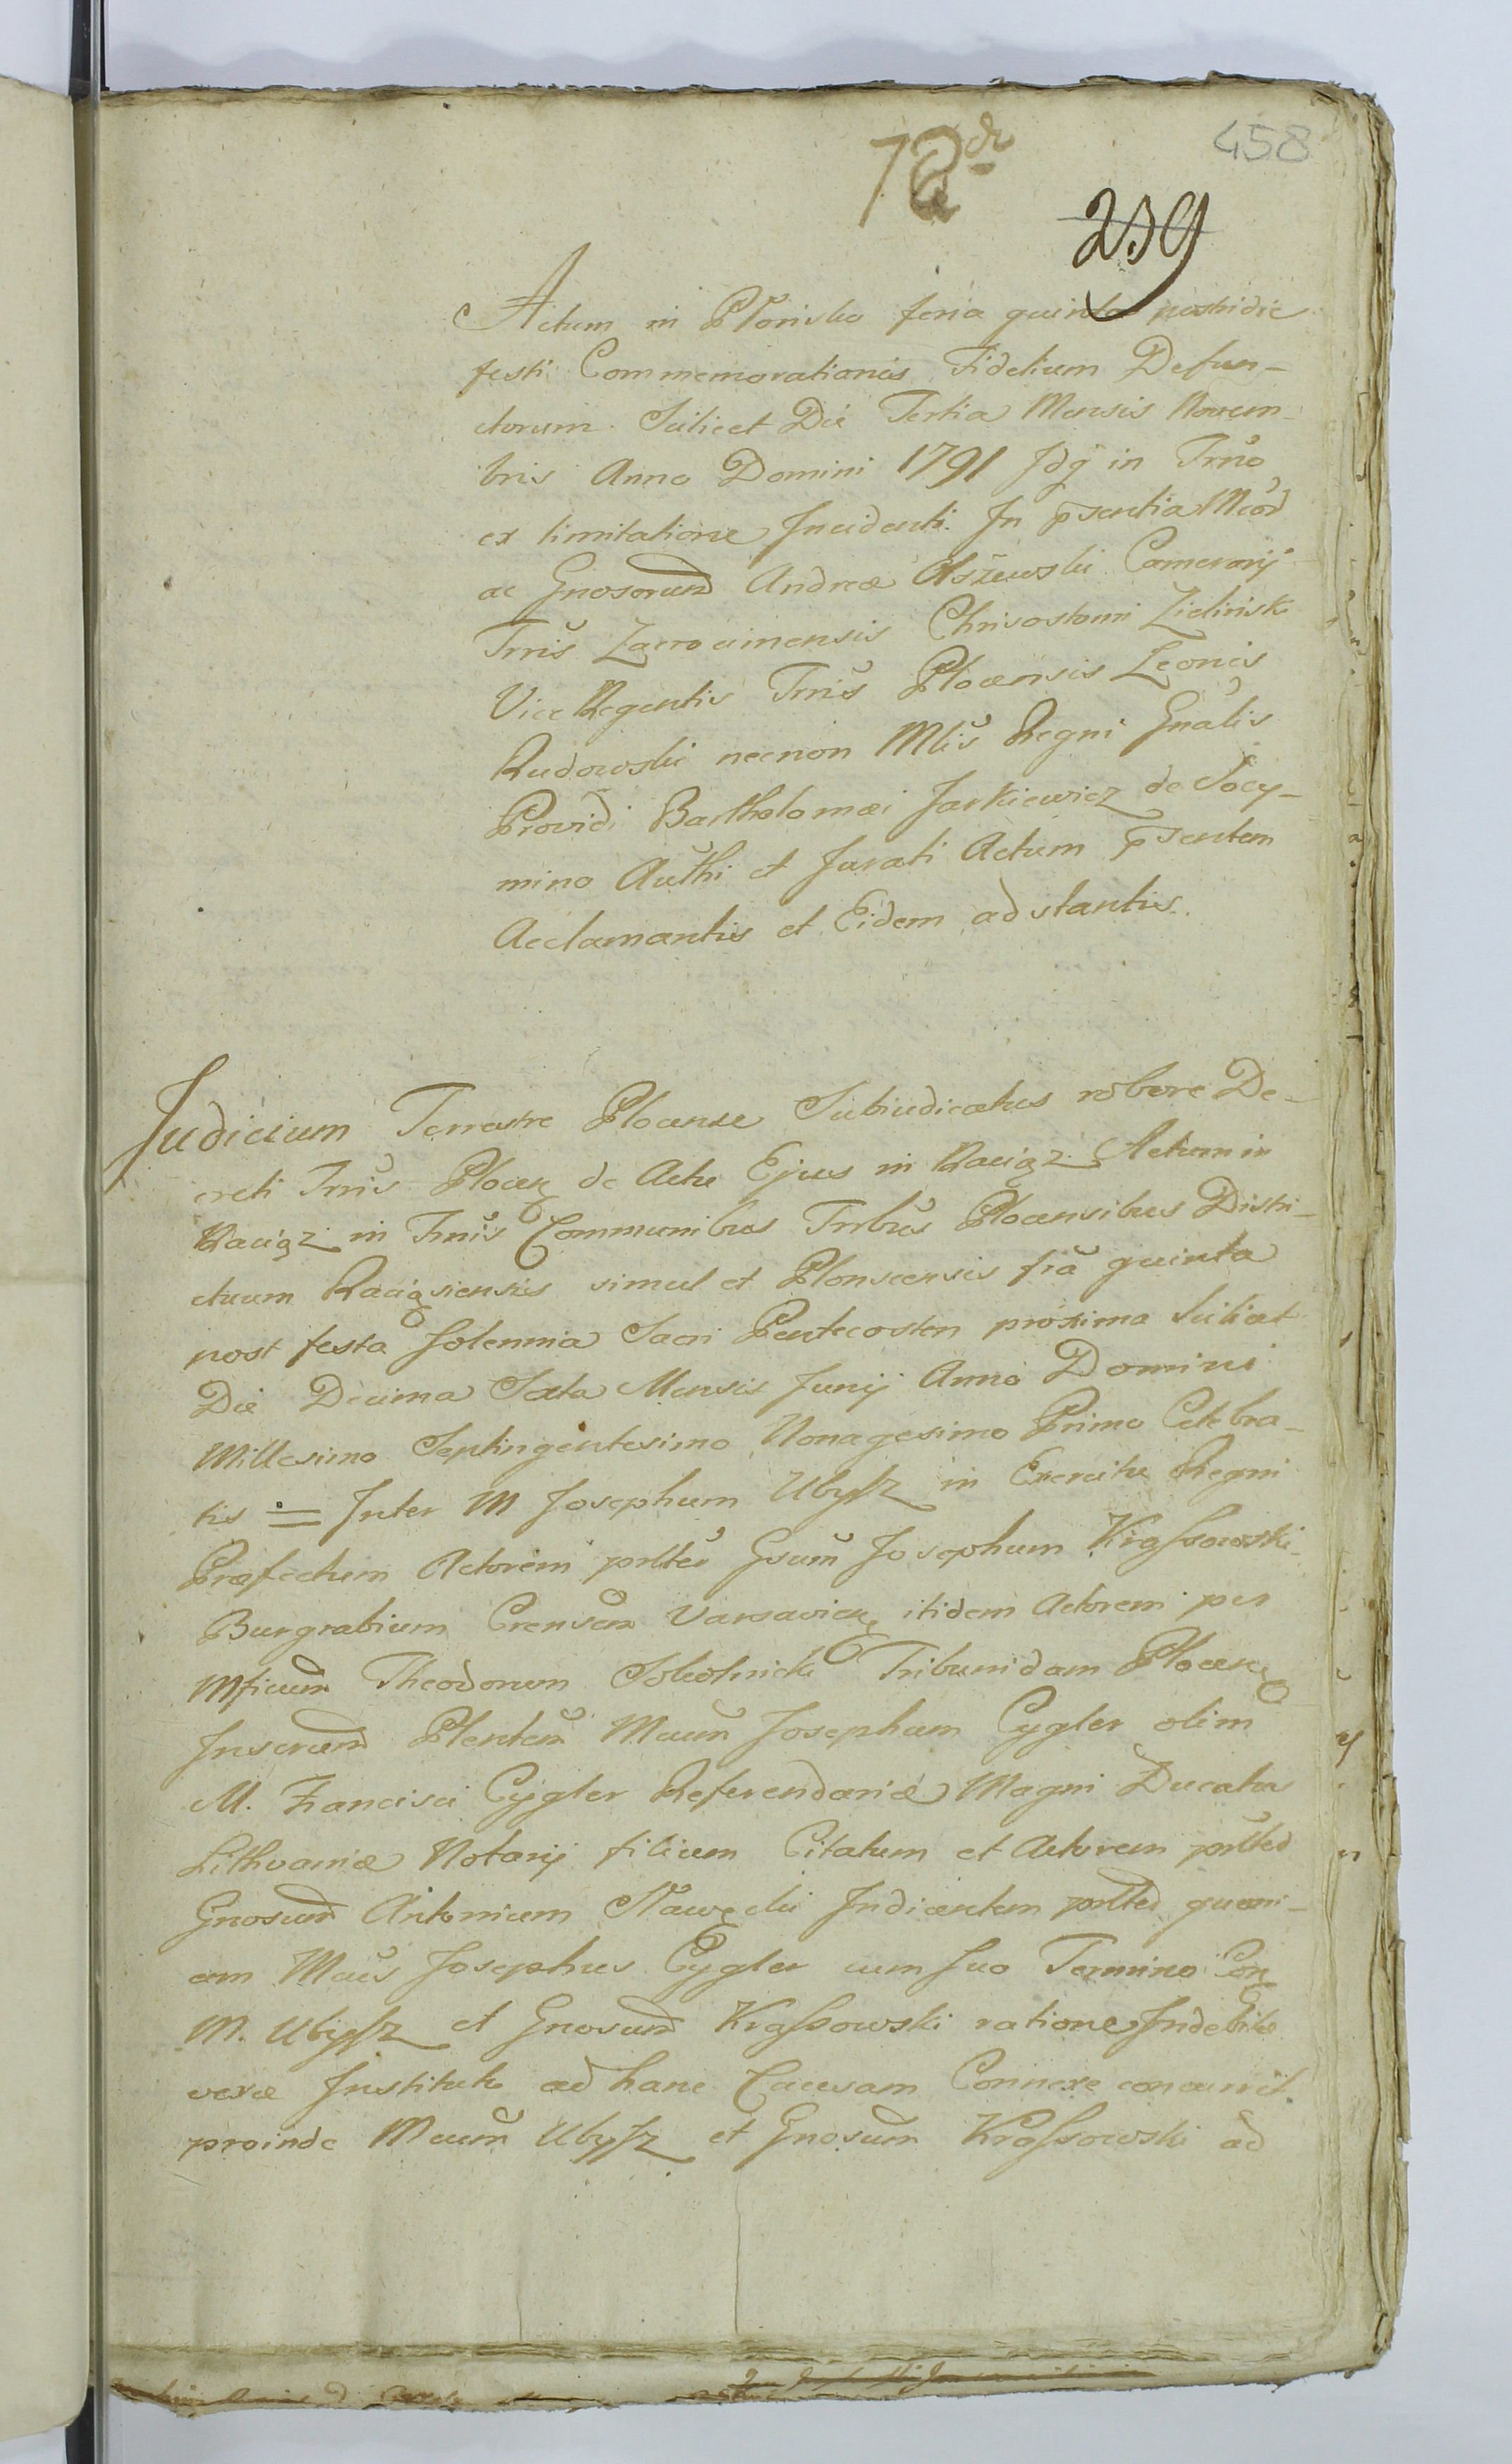 458
239
Actum in Płońsko feria quinta postridie
festi Commemorationis Fidelium Defun-
ctorum Scilicet Die Tertia Mensis Novem-
bris Anno Domini 1791 Jdq in Trno
ex limitatione Incidenti. In psentia Mcor
ac Gnosorum Andreæ Olszewski Camerarij
Trris Zacrocimensis Chrisostomi Zielinski
Vice Regentis Trris Plocensis Leonis
Rudowski necnon Mlis Regni Gnalis
Providi Bartholomæi Jaskiewicz de Socy-
mino Authi et Jurati Actum psentem
Acclamantis et Eidem adstantis.
Judicium Terrestre Plocense Subiudicatus robore De-
creti Trris Plocen de Actu Ejus in Raciąz Actum in
Raciąz in Trnis Communibus Trrbus Plocensibus Distri-
ctuum Raciąsiensis simul et Plonscensis fia quinta
post festa Solennia Sacri Pentecosten proxima Scilicet
Die Decima Sexta Mensis Junij Anno Domini
Millesimo Septingentesimo Nonagesimo Primo Celebra-
tis = Inter M Josephum Ubysz in Exercitu Regni
Præfectum Actorem prlter Gsum Josephum Krassowski
Burgrabium Crensem Varsavien itidem Actorem per
Mficum Theodorum Sokolnicki Tribunidam Plocen
Inserend Plentem Mcum Josephum Cygler olim
M. Francisci Cygler Referendariæ Magni Ducatus
Lithvaniæ Notarij filium Citatum et Actorem prlted
Gnosum Antonium Nawęcki Indicantem prlted quoni-
am Mcus Josephus Cygler cum suo Termino Con
M. Ubysz et Gnosum Krassowski ratione Indebitæ
vexæ Institut ad hanc Causam Connexe concurrit
proinde Mcum Ubysz et Gnosum Krassowski ad